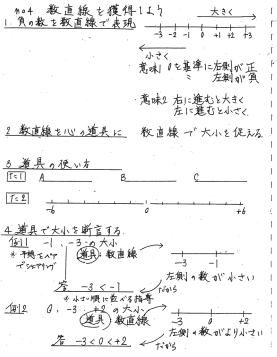 no4 数直線を獲得しよう
1. 負の数を数直線で表現
大きく
-3 -2 -1 0 +1 +2 +3
小さく
意味1 0を基準に右側が正
〃 左側が負
意味2 右に進むと大きく
左に進むと小さく
2 数直線を心の道具に 数直線で大小を捉える
3 道具の使い方
T=1 A B C
T=2
-6 0 +6
4 道具で大小を断言する
例1 -1, -3の大小
道具 数直線
-3 -1
左側の数が小さい
だから
答 -3 < -1
※小さい順に並べる指導
例2 0, -3, +2の大小
道具 数直線
-3 0
左側の数がより小さい
だから
答 -3 < 0 < +2